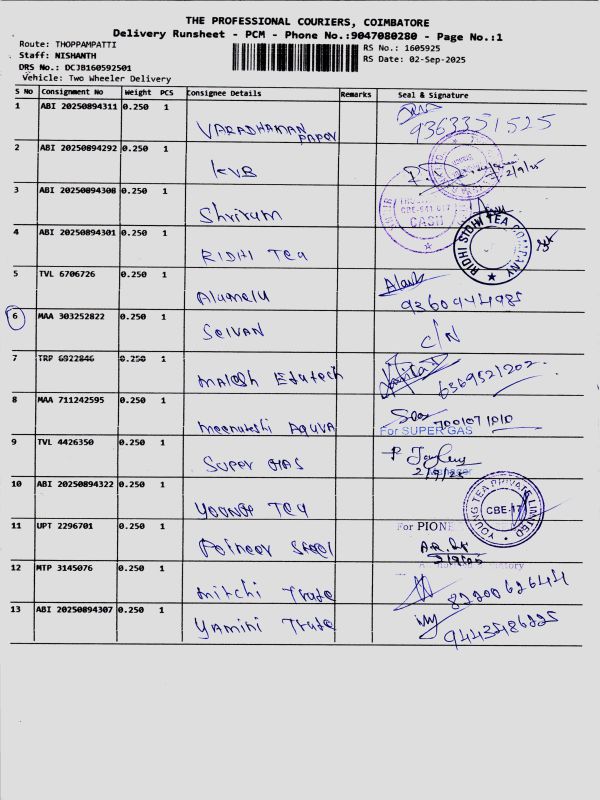 THE PROFESSIONAL COURIERS, COIMBATORE
Delivery Runsheet - PCM - Phone No.:9047080280 - Page No.:1
Route: THOPPAMPATTI
RS No.: 1605925
Staff: NISHANTH
RS Date: 02-Sep-2025
DRS No.: DCJB160592501
Vehicle: Two Wheeler Delivery
S No Consignment No Weight PCS Consignee Details Remarks Seal & Signature
1 ABI 20250894311 0.250 1 VARADHAMAN PAPER 9363351525
2 ABI 20250894292 0.250 1 KVB 2/9/25
3 ABI 20250894308 0.250 1 Shriram CASH
4 ABI 20250894301 0.250 1 RIDHI Tea RIDHI SIDHI TEA COMPANY
5 TVL 6706726 0.250 1 Alamelu 9360944985
6 MAA 303252822 0.250 1 SelVAN C/N
7 TRP 6922846 0.250 1 6369521202
8 MAA 711242595 0.250 1 meenakshi AQUVA
For SUPER GAS
9 TVL 4426350 0.250 1 SUPER GAS 2/9/25
Manager
10 ABI 20250894322 0.250 1 YOUNG Tea YOUNG TEA PRIVATE LIMITED CBE-17
For PION
11 UPT 2296701 0.250 1 Poineer
12 MTP 3145076 0.250 1 mitchi Trade 8220062644
13 ABI 20250894307 0.250 1 Yamini Trade